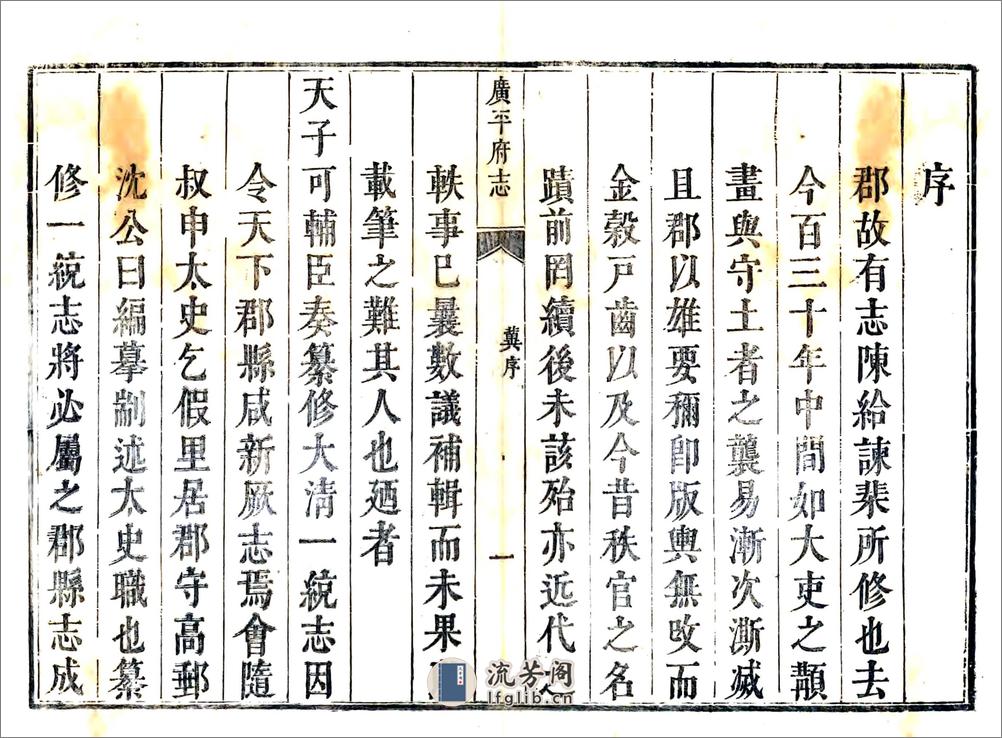 序
郡故有志陳給諫棐所修也去
今百三十年中間如大吏之顓
畫與守土者之襲易漸次澌滅
且郡以雄要稱卽版輿無攺而
金榖戸齒以及今昔秩官之名
蹟前罔續後未該殆亦近代
廣平府志
冀序
一
軼事已曩數議補輯而未果
載筆之難其人也廼者
天子可輔臣奏纂修大清一統志因
令天下郡縣咸新厥志焉會隨
叔申太史乞假里居郡守高郵
沈公曰編摹剬述太史職也纂
修一統志將必屬之郡縣志成
流芳阁
lfglib.cn